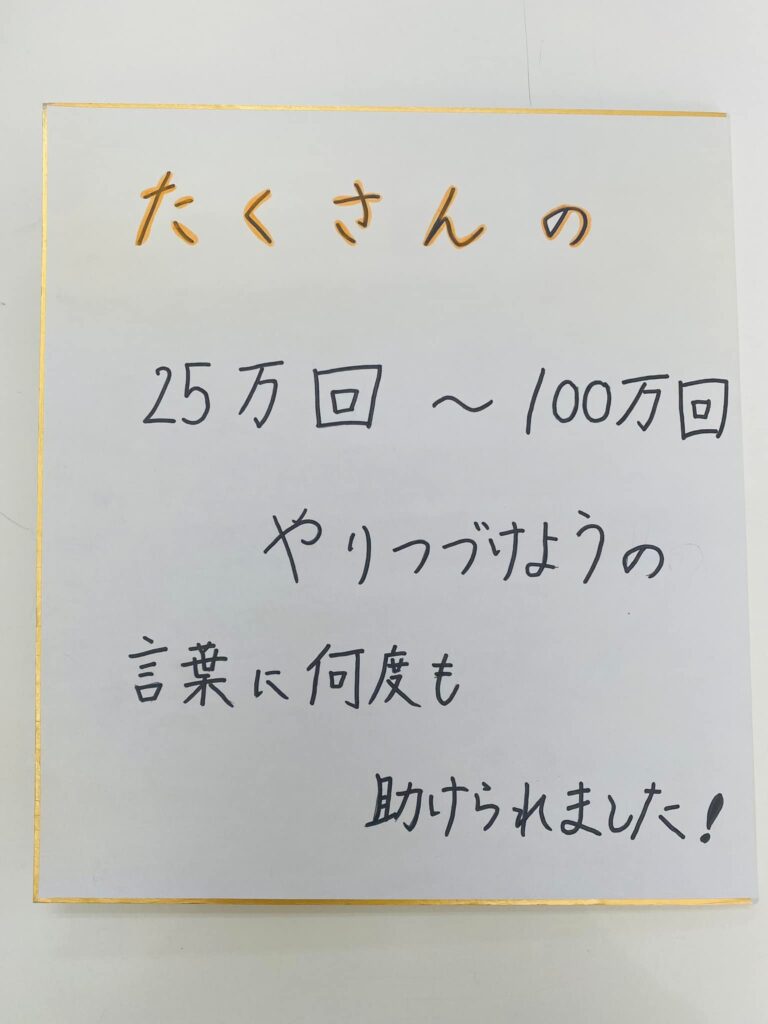 たくさんの
25万回 ～ 100万回
やりつづけようの
言葉に何度も
助けられました!